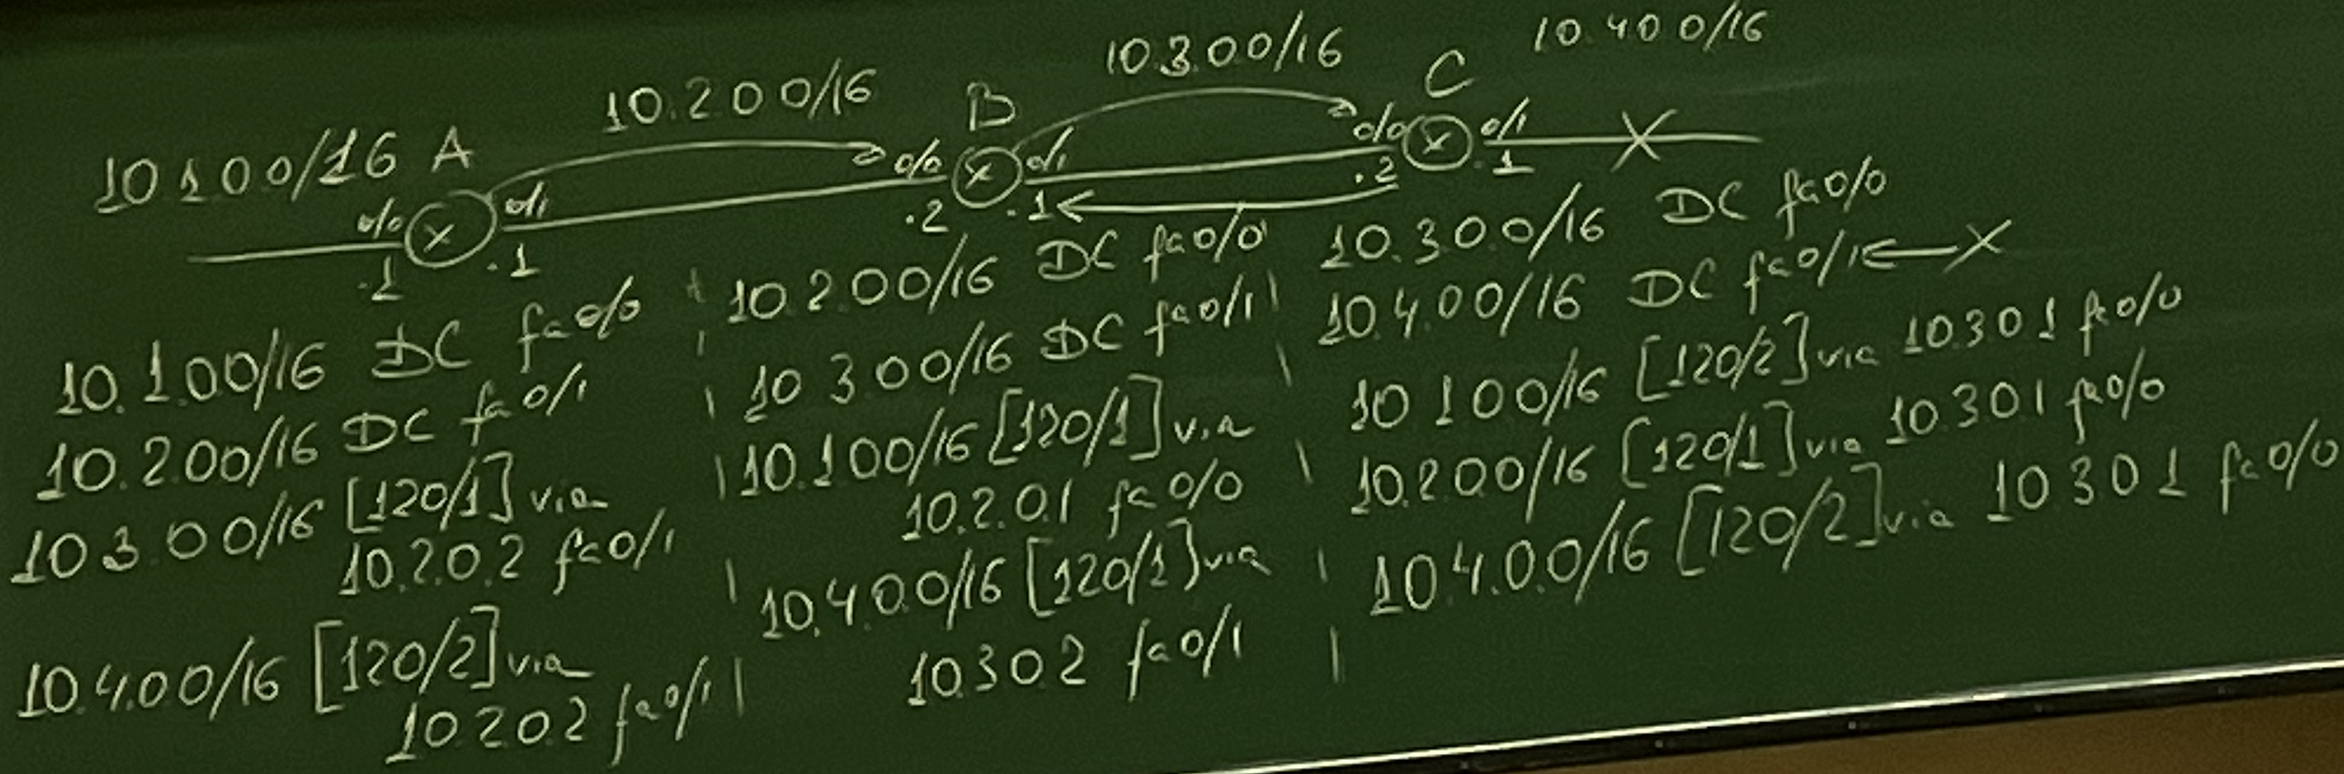 10.1.0.0/16 A 10.2.0.0/16 B 10.3.0.0/16 C 10.4.0.0/16
0/0 0/1 0/0 0/1 0/0 0/1
.1 .1 .2 .1 .2 .1
10.1.0.0/16 DC fa0/0
10.2.0.0/16 DC fa0/1
10.3.0.0/16 [120/1] via
10.2.0.2 fa0/1
10.4.0.0/16 [120/2] via
10.2.0.2 fa0/1
10.2.0.0/16 DC fa0/0
10.3.0.0/16 DC fa0/1
10.1.0.0/16 [120/1] via
10.2.0.1 fa0/0
10.4.0.0/16 [120/1] via
10.3.0.2 fa0/1
10.3.0.0/16 DC fa0/0
10.4.0.0/16 DC fa0/1 ← X
10.1.0.0/16 [120/2] via 10.3.0.1 fa0/0
10.2.0.0/16 [120/1] via 10.3.0.1 fa0/0
10.4.0.0/16 [120/2] via 10.3.0.1 fa0/0